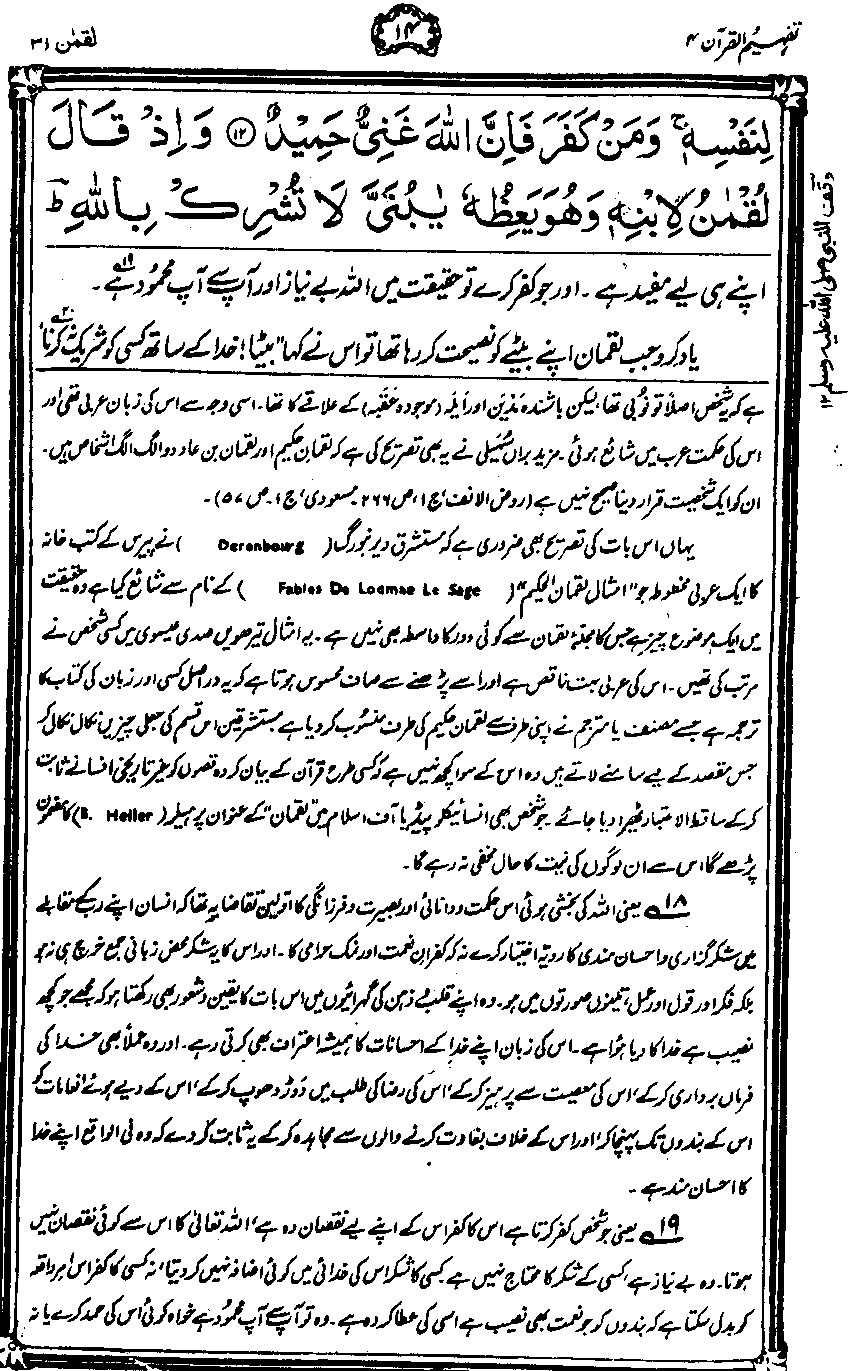 تفہیم القرآن ۴
۱۴
لقمٰن ۳۱
لِنَفْسِهٖ ۚ وَمَنْ كَفَرَ فَاِنَّ اللّٰهَ غَنِيٌّ حَمِيْدٌ ۝۱۲ وَاِذْ قَالَ
لُقْمٰنُ لِابْنِهٖ وَهُوَ يَعِظُهٗ يٰبُنَيَّ لَا تُشْرِكْ بِاللّٰهِ ؕ
وقف النبی صلی اللہ علیہ وسلم ۱۲
اپنے ہی لیے مفید ہے۔ اور جو کفر کرے تو حقیقت میں اللہ بے نیاز اور آپ سے آپ محمود ہے۱۹۔
یاد کرو جب لقمان اپنے بیٹے کو نصیحت کر رہا تھا تو اس نے کہا ”بیٹا! خدا کے ساتھ کسی کو شریک نہ کرنا۲۰،
ہے کہ یہ شخص اصلاً تو نُوبی تھا، لیکن باشندہ مَدْیَن اور اَیلہ (موجودہ عَقَبہ) کے علاقے کا تھا۔ اسی وجہ سے اس کی زبان عربی تھی اور
اس کی حکمت عرب میں شائع ہوئی۔ مزید براں سُہَیلی نے یہ بھی تصریح کی ہے کہ لقمان حکیم اور لقمان بن عاد دو الگ الگ اشخاص ہیں۔
ان کو ایک شخصیت قرار دینا صحیح نہیں ہے (روض الانف، ج ۱، ص ۲۶۶۔ مسعودی، ج ۱۔ ص ۵۷)۔
یہاں اس بات کی تصریح بھی ضروری ہے کہ مستشرق دیرنبورگ ( Derenbourg ) نے پیرس کے کتب خانہ
کا ایک عربی مخطوطہ جو ”امثال لقمان الحکیم“ ( Fables De Loqman Le Sage ) کے نام سے شائع کیا ہے وہ حقیقت
میں ایک موضوع چیز ہے جس کا مجلۂ لقمان سے کوئی دور کا واسطہ بھی نہیں ہے۔ یہ امثال تیرھویں صدی عیسوی میں کسی شخص نے
مرتب کی تھیں۔ اس کی عربی بہت ناقص ہے اور اسے پڑھنے سے صاف محسوس ہوتا ہے کہ یہ دراصل کسی اور زبان کی کتاب کا
ترجمہ ہے جسے مصنف یا مترجم نے اپنی طرف سے لقمان حکیم کی طرف منسوب کر دیا ہے۔ مستشرقین اس قسم کی جعلی چیزیں نکال نکال کر
جس مقصد کے لیے سامنے لاتے ہیں وہ اس کے سوا کچھ نہیں ہے کہ کسی طرح قرآن کے بیان کردہ قصوں کو غیر تاریخی افسانے ثابت
کر کے ساقط الاعتبار ٹھیرا دیا جائے۔ جو شخص بھی انسائیکلوپیڈیا آف اسلام میں ”لقمان“ کے عنوان پر ہیلر ( B. Heller) کا مضمون
پڑھے گا، اس سے ان لوگوں کی نیت کا حال مخفی نہ رہے گا۔
۱۸ یعنی اللہ کی بخشی ہوئی اس حکمت و دانائی اور بصیرت و فرزانگی کا اوّلین تقاضا یہ تھا کہ انسان اپنے رب کے مقابلے
میں شکر گزاری و احسان مندی کا رویّہ اختیار کرے نہ کہ کفرانِ نعمت اور نمک حرامی کا۔ اور اس کا یہ شکر محض زبانی جمع خرچ ہی نہ ہو
بلکہ فکر اور قول اور عمل، تینوں صورتوں میں ہو۔ وہ اپنے قلب و ذہن کی گہرائیوں میں اس بات کا یقین و شعور بھی رکھتا ہو کہ مجھے جو کچھ
نصیب ہے خدا کا دیا ہؤا ہے۔ اس کی زبان اپنے خدا کے احسانات کا ہمیشہ اعتراف بھی کرتی رہے۔ اور وہ عملاً بھی خدا کی
فرماں برداری کر کے، اس کی معصیت سے پرہیز کر کے، اس کی رضا کی طلب میں دَوڑ دھوپ کر کے، اس کے دیے ہوئے انعامات کو
اس کے بندوں تک پہنچا کر، اور اس کے خلاف بغاوت کرنے والوں سے مجاہدہ کر کے یہ ثابت کر دے کہ وہ فی الواقع اپنے خدا
کا احسان مند ہے۔
۱۹ یعنی جو شخص کفر کرتا ہے اس کا کفر اس کے اپنے لیے نقصان دہ ہے، اللہ تعالیٰ کا اس سے کوئی نقصان نہیں
ہوتا۔ وہ بے نیاز ہے، کسی کے شکر کا محتاج نہیں ہے۔ کسی کا شکر اس کی خدائی میں کوئی اضافہ نہیں کر دیتا، نہ کسی کا کفر اس امر واقعہ
کو بدل سکتا ہے کہ بندوں کو جو نعمت بھی نصیب ہے اسی کی عطا کردہ ہے۔ وہ تو آپ سے آپ محمود ہے خواہ کوئی اس کی حمد کرے یا نہ